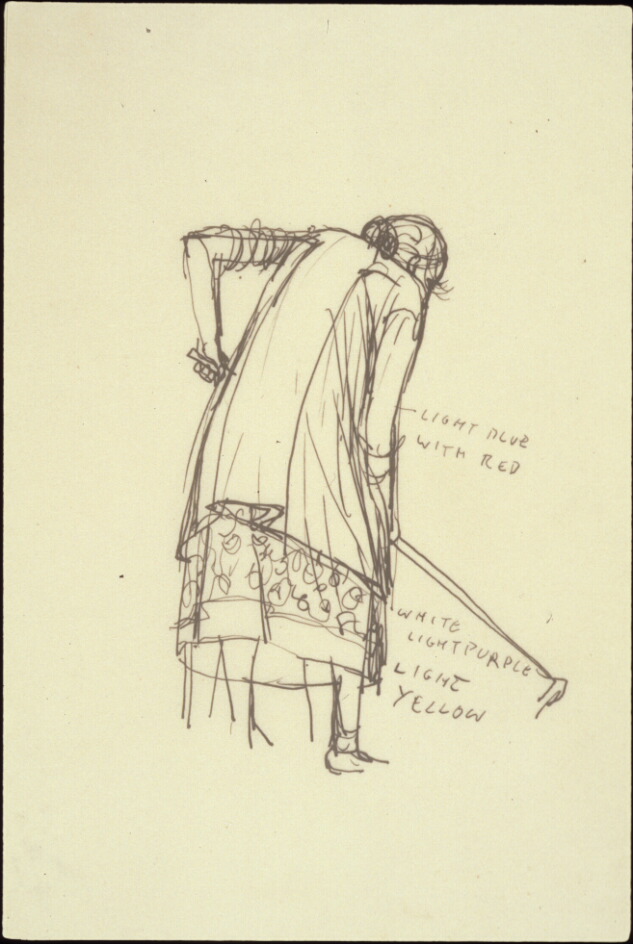 LIGHT BLUE
WITH RED
WHITE
LIGHT PURPLE
LIGHT
YELLOW